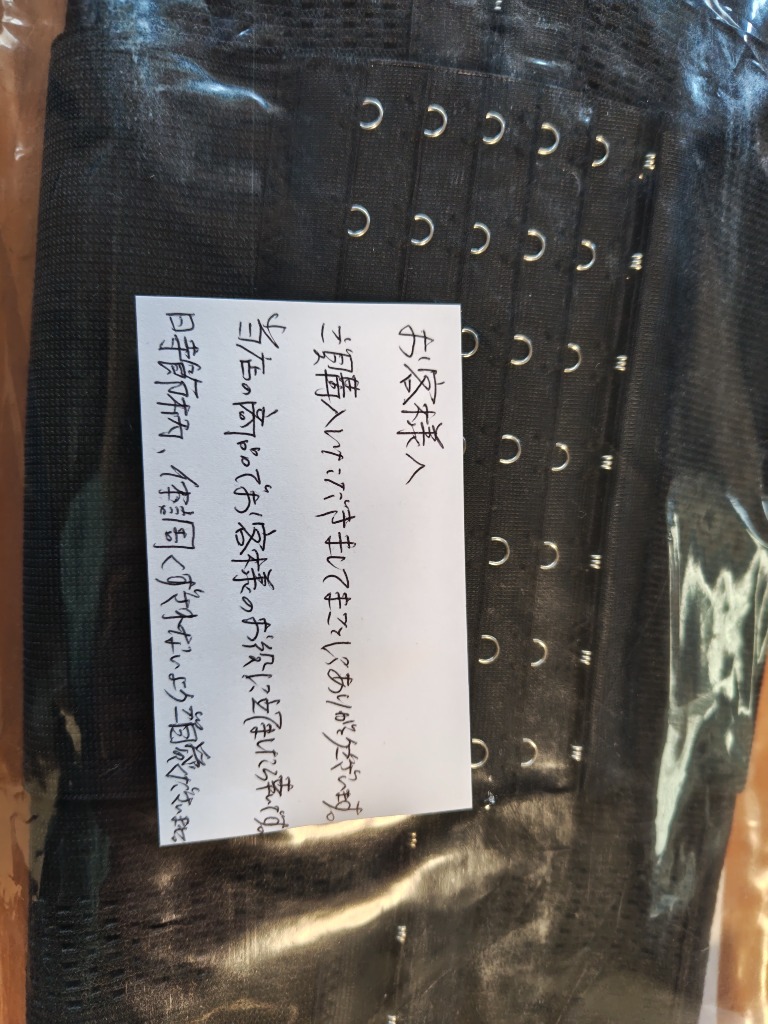 お客様へ
ご購入いただきましてまことにありがとうございます。
当店の商品でお客様のお役に立てましたら幸いです。
日時節柄、体調くずされないようご自愛くださいませ